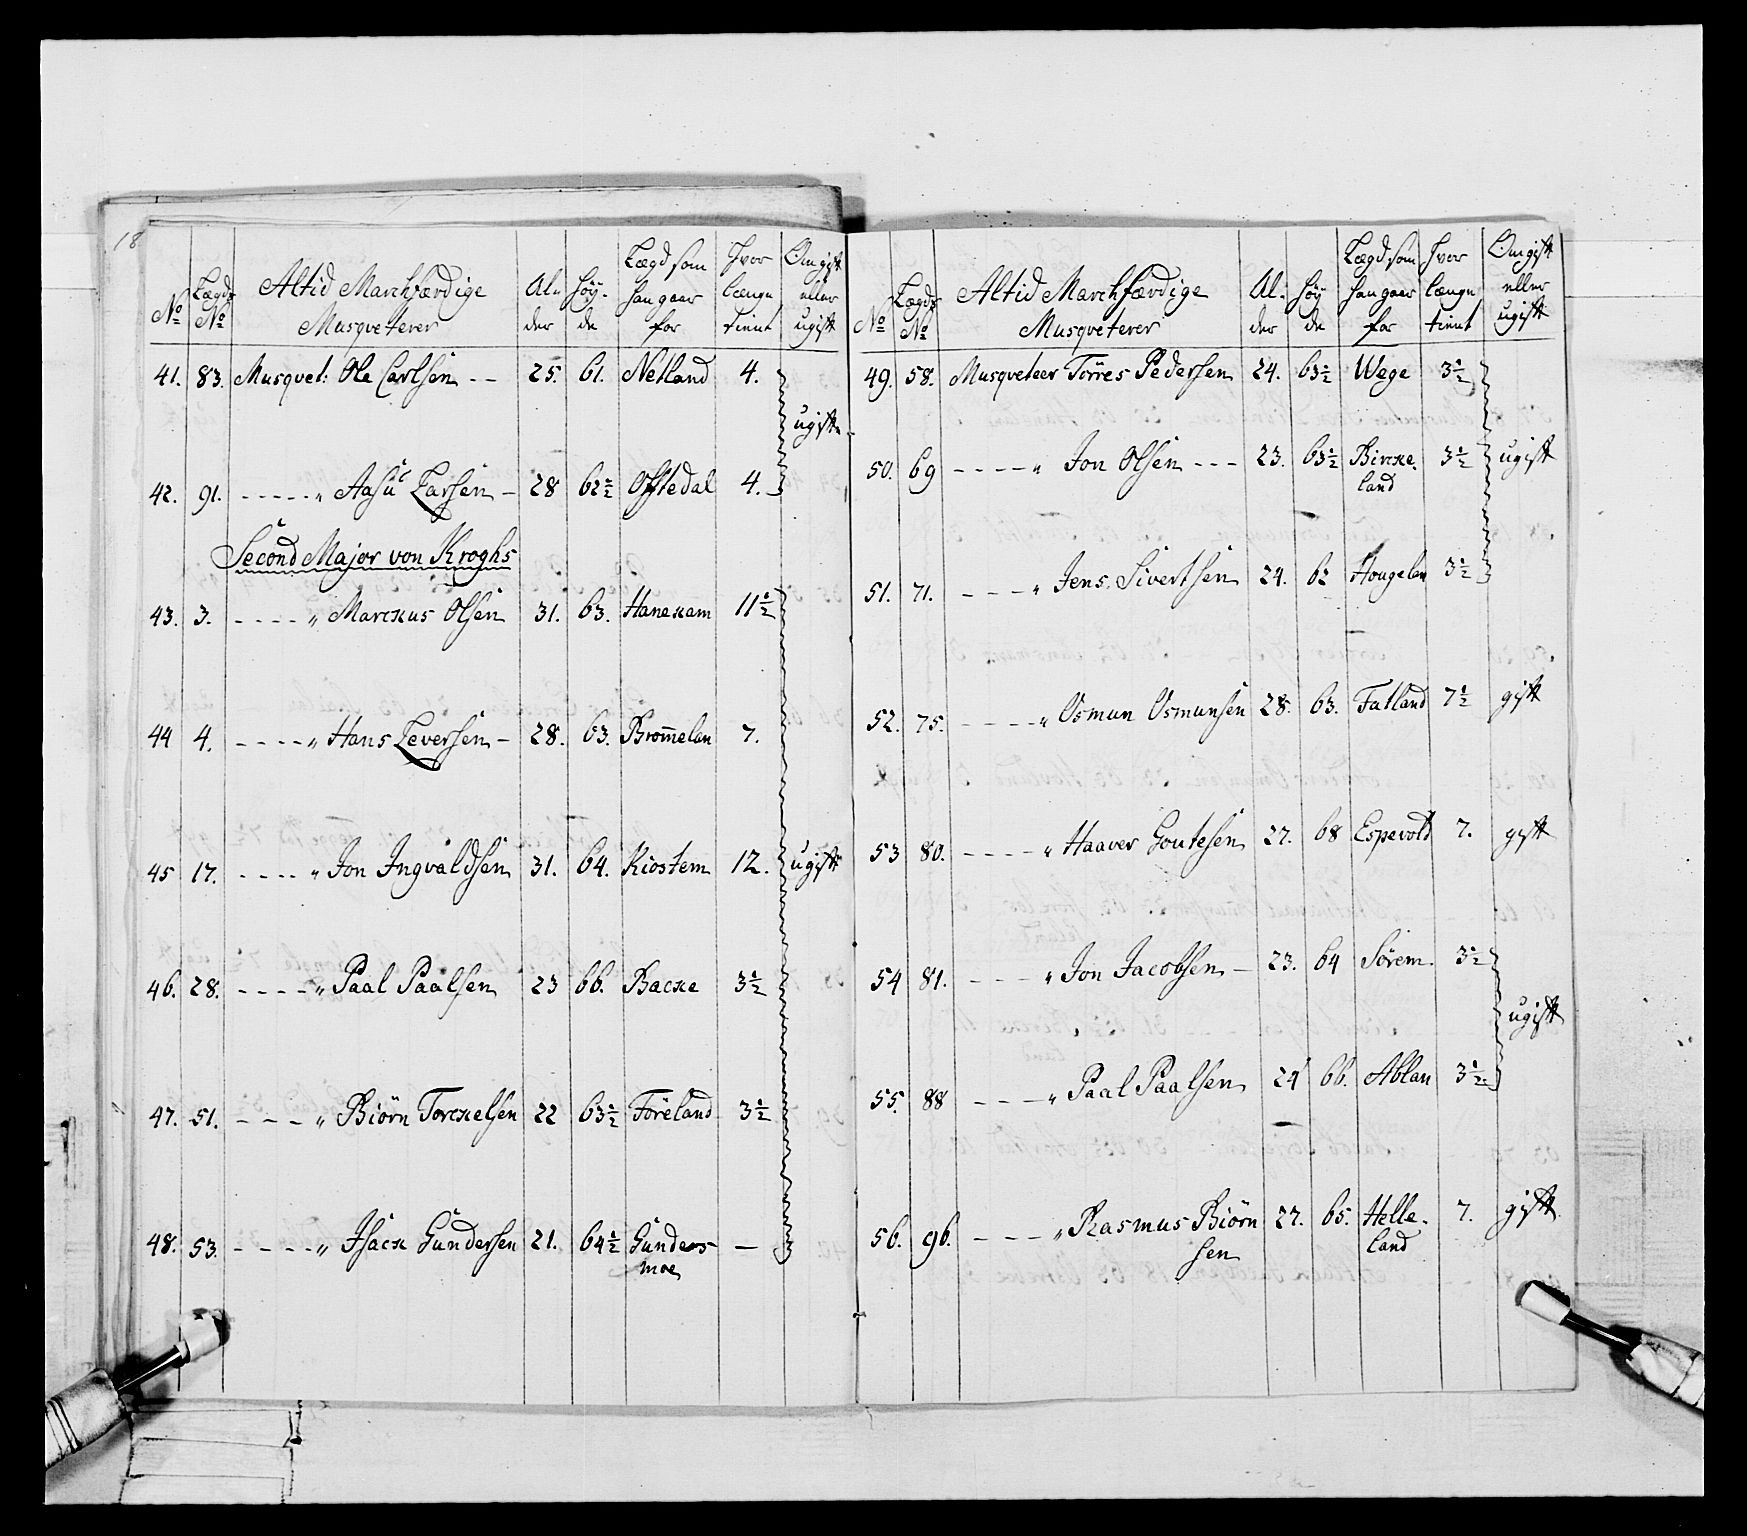 18
No | Lægds No | Altid Marchfærdige Musqveterer | Al- der | Høy- de | Lægd som han gaar for | Hvor længe tient | Om gift eller ugift
41. 83. Musqvet: Ole Carlsen -- 25. 61. Netland 4.
ugift.
42. 91. ----- " Larsen - 28 62½ Ofstedal 4.
Second Major von Kroghs
43. 3. ---- " Marcxus Olsen 31. 63. Hanexam 11½
44 4. ---- " Hans Leversen - 28. 63. Brom̅elan 7.
45 17. ---- " Jon Ingvaldsen 31. 64. Kiostem 12. ugift
46. 28. ---- " Paal Paalsen 23 66. Bacxe 3½
47. 51. --- " Biörn Torcxelsen 22 63½ Föreland 3½
48. 53. ---- " Isacx Gundersen 21. 64½ Gunders- —
moe
No | Lægds No | Altid Marchfærdige Musqveterer | Al- der | Høy de | Lægd som han gaar for | Hvor længe tient | Om gift eller ugift
49. 58. Musqveteer Törres Pedersen 24. 63½ Wege 3½
50. 69 ---- " Jon Olsen --- 23. 63½ Bircxe- 3½ ugift
land
51. 71. --- " Jens Sivertsen 24. 62 Hougelan 3½
52. 75. ---- " Osmun Osmunsen 28. 63. Fatland 7½ gift
53 80. ---- " Haaver Goutesen 27. 68 Espevold 7. gift
54 81. --- " Jon Jacobsen - 23. 64 Sörem. 3½
ugift
55. 88 --- " Paal Paalsen 24 66. Ablan 3½
56. 96. --- " Rasmus Biörn 27. 65. Helle- 7. gift
sen land